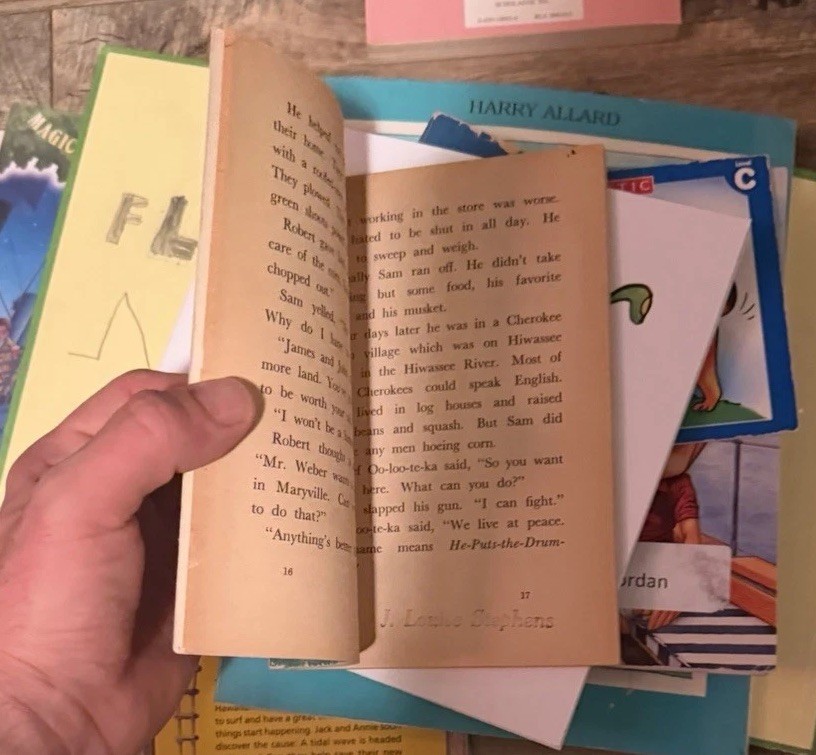 HARRY ALLARD
MAGIC
TIC
C
FL
He helped
their home.
with a
They plowed
green shoots
Robert gave
care of the
chopped out"
Sam yelled,
Why do I have
"James and
more land.
to be worth your
"I won't be a
Robert thought
"Mr. Weber
in Maryville.
to do that?"
"Anything's better
16
working in the store was worse.
hated to be shut in all day. He
to sweep and weigh.
ally Sam ran off. He didn't take
ing but some food, his favorite
and his musket.
r days later he was in a Cherokee
village which was on Hiwassee
in the Hiwassee River. Most of
Cherokees could speak English.
lived in log houses and raised
beans and squash. But Sam did
any men hoeing corn.
f Oo-loo-te-ka said, "So you want
here. What can you do?"
slapped his gun. "I can fight."
oo-te-ka said, "We live at peace.
ame means He-Puts-the-Drum-
17
J. Louise Stephens
ordan
to surf and have a great
things start happening. Jack and Annie
discover the cause: A tidal wave is headed